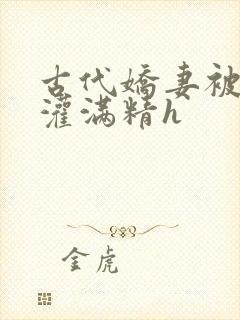 古代嬌妻被
灌滿精h
金虎